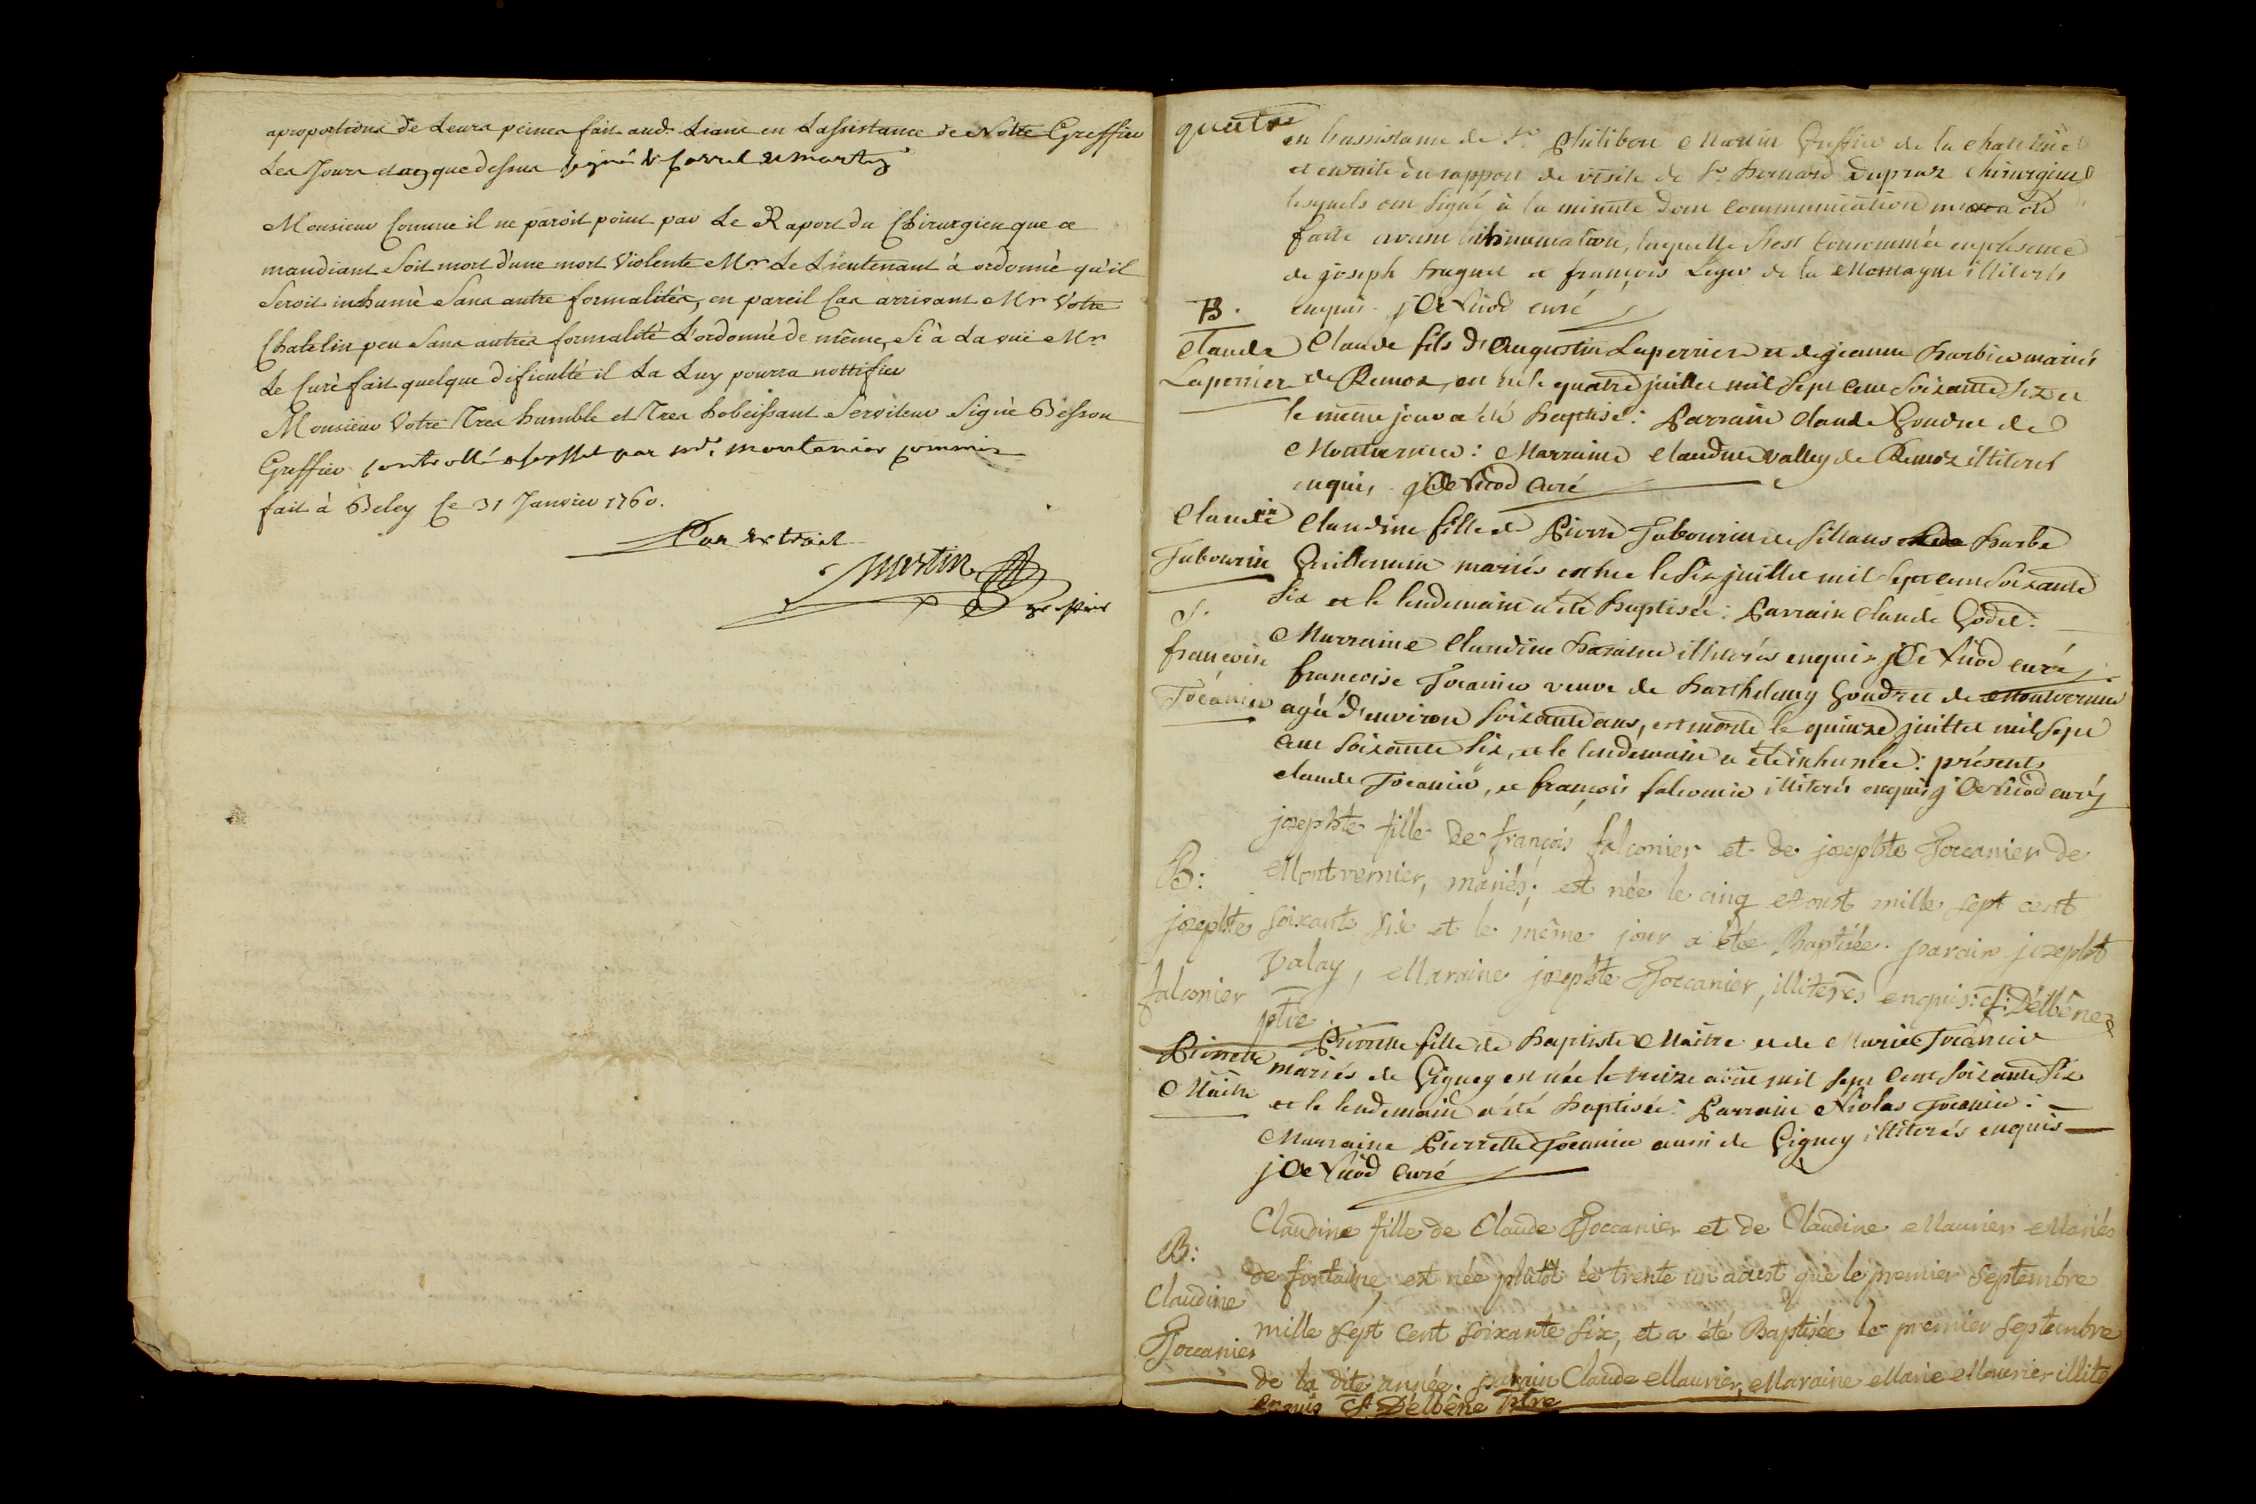 aproportions de Leurs peines fait aud. Lians en Lassistance de Notre Greffier
Les Jours que dessus signé
Monsieur Comme il ne paroit point par Le Raport du Chirurgien que ce
mandiant Soit mort d'une mort Violente Mr. Le Lieutenant à ordonné qu'il
Seroit inhumé Sans autre formalités, en pareil Cas arrivant Mr Votre
Chatelin peu Sans autres formalité L'ordonné de même, Si à La vüe Mr
Le Curé fait quelque dificulté il La Luy pourra nottifier
Monsieur Votre Tres humble et Tres hobeissant Serviteur Signé Besson
Greffier controllé par commis
fait à Beley Ce 31 Janvier 1760.
Par Extrait
Martin
greffier
quatre
en l'assistance de Sr. Philibert Martin Greffier de la
et ensuite du rapport de visite de Sr. Bernard Dupraz Chirurgien
lesquels ont Signé à la minute dont Communication a été
faite avant l'inhumation, laquelle s'est Consommée en présence
de joseph huguet et françois Léger de la Montagne illiterés
enquis. j De Viod curé
B.
Claude
Laperrier
Claude fils d'Augustin Laperriere et de jeanne Barbier mariés
de Remoz, est né le quatre juillet mil Sept Cent Soixante Six et
le même jour a été baptisé: Parrain Claude Goudret de
Montvernier: Marraine Claudine Valley de Remoz illiterés
enquis j De Viod Curé
Claudine
Tabourin
Claudine fille de Pierre Tabourin de Sillans et de Barbe
Guillermin mariés est née le Six juillet mil Sept Cent Soixante
Six et le lendemain a été baptisée: Parrain Claude Godet:
Marraine Claudine illiterés enquis j De Viod curé
S.
francoise
Tocanier
francoise Tocanier veuve de Barthelemy Goudret de Montvernier
agée d'environ Soixante ans, est morte le quinze juillet mil Sept
Cent Soixante Six, et le lendemain a été inhumée: présents
claude Tocanier, et françois falconier illiterés enquis j De Viod curé
B:
josephte
falconier
josephte fille de françois falconier et de josephte Toccanier de
Montvernier, mariés; est née le cinq Aoust mille sept cent
soixante six et le même jour a étée Baptisée. parain joseph
Valay, Maraine josephte Toccanier, illiterés enquis: f: Délbêne
ptre.
Pierrette
Maître
Pierrette fille de Baptiste Maître et de Marie Tocanier
mariés de Gigney est née le treize août mil Sept Cent Soixante Six
et le lendemain a été baptisée: Parrain Nicolas Tocanier:
Marraine Pierrette Tocanier aussi de Gigney illiterés enquis
j De Viod Curé
B:
Claudine
Toccanier
Claudine fille de Claude Toccanier et de Claudine Maurier Mariés
de fontaine, est née plutôt le trente un aoust que le premier Septembre
mille sept Cent soixante six, et a été Baptisée le premier septembre
de la dite année. parain Claude Maurier, Maraine Marie Maurier illité
enquis f. Délbêne Ptre